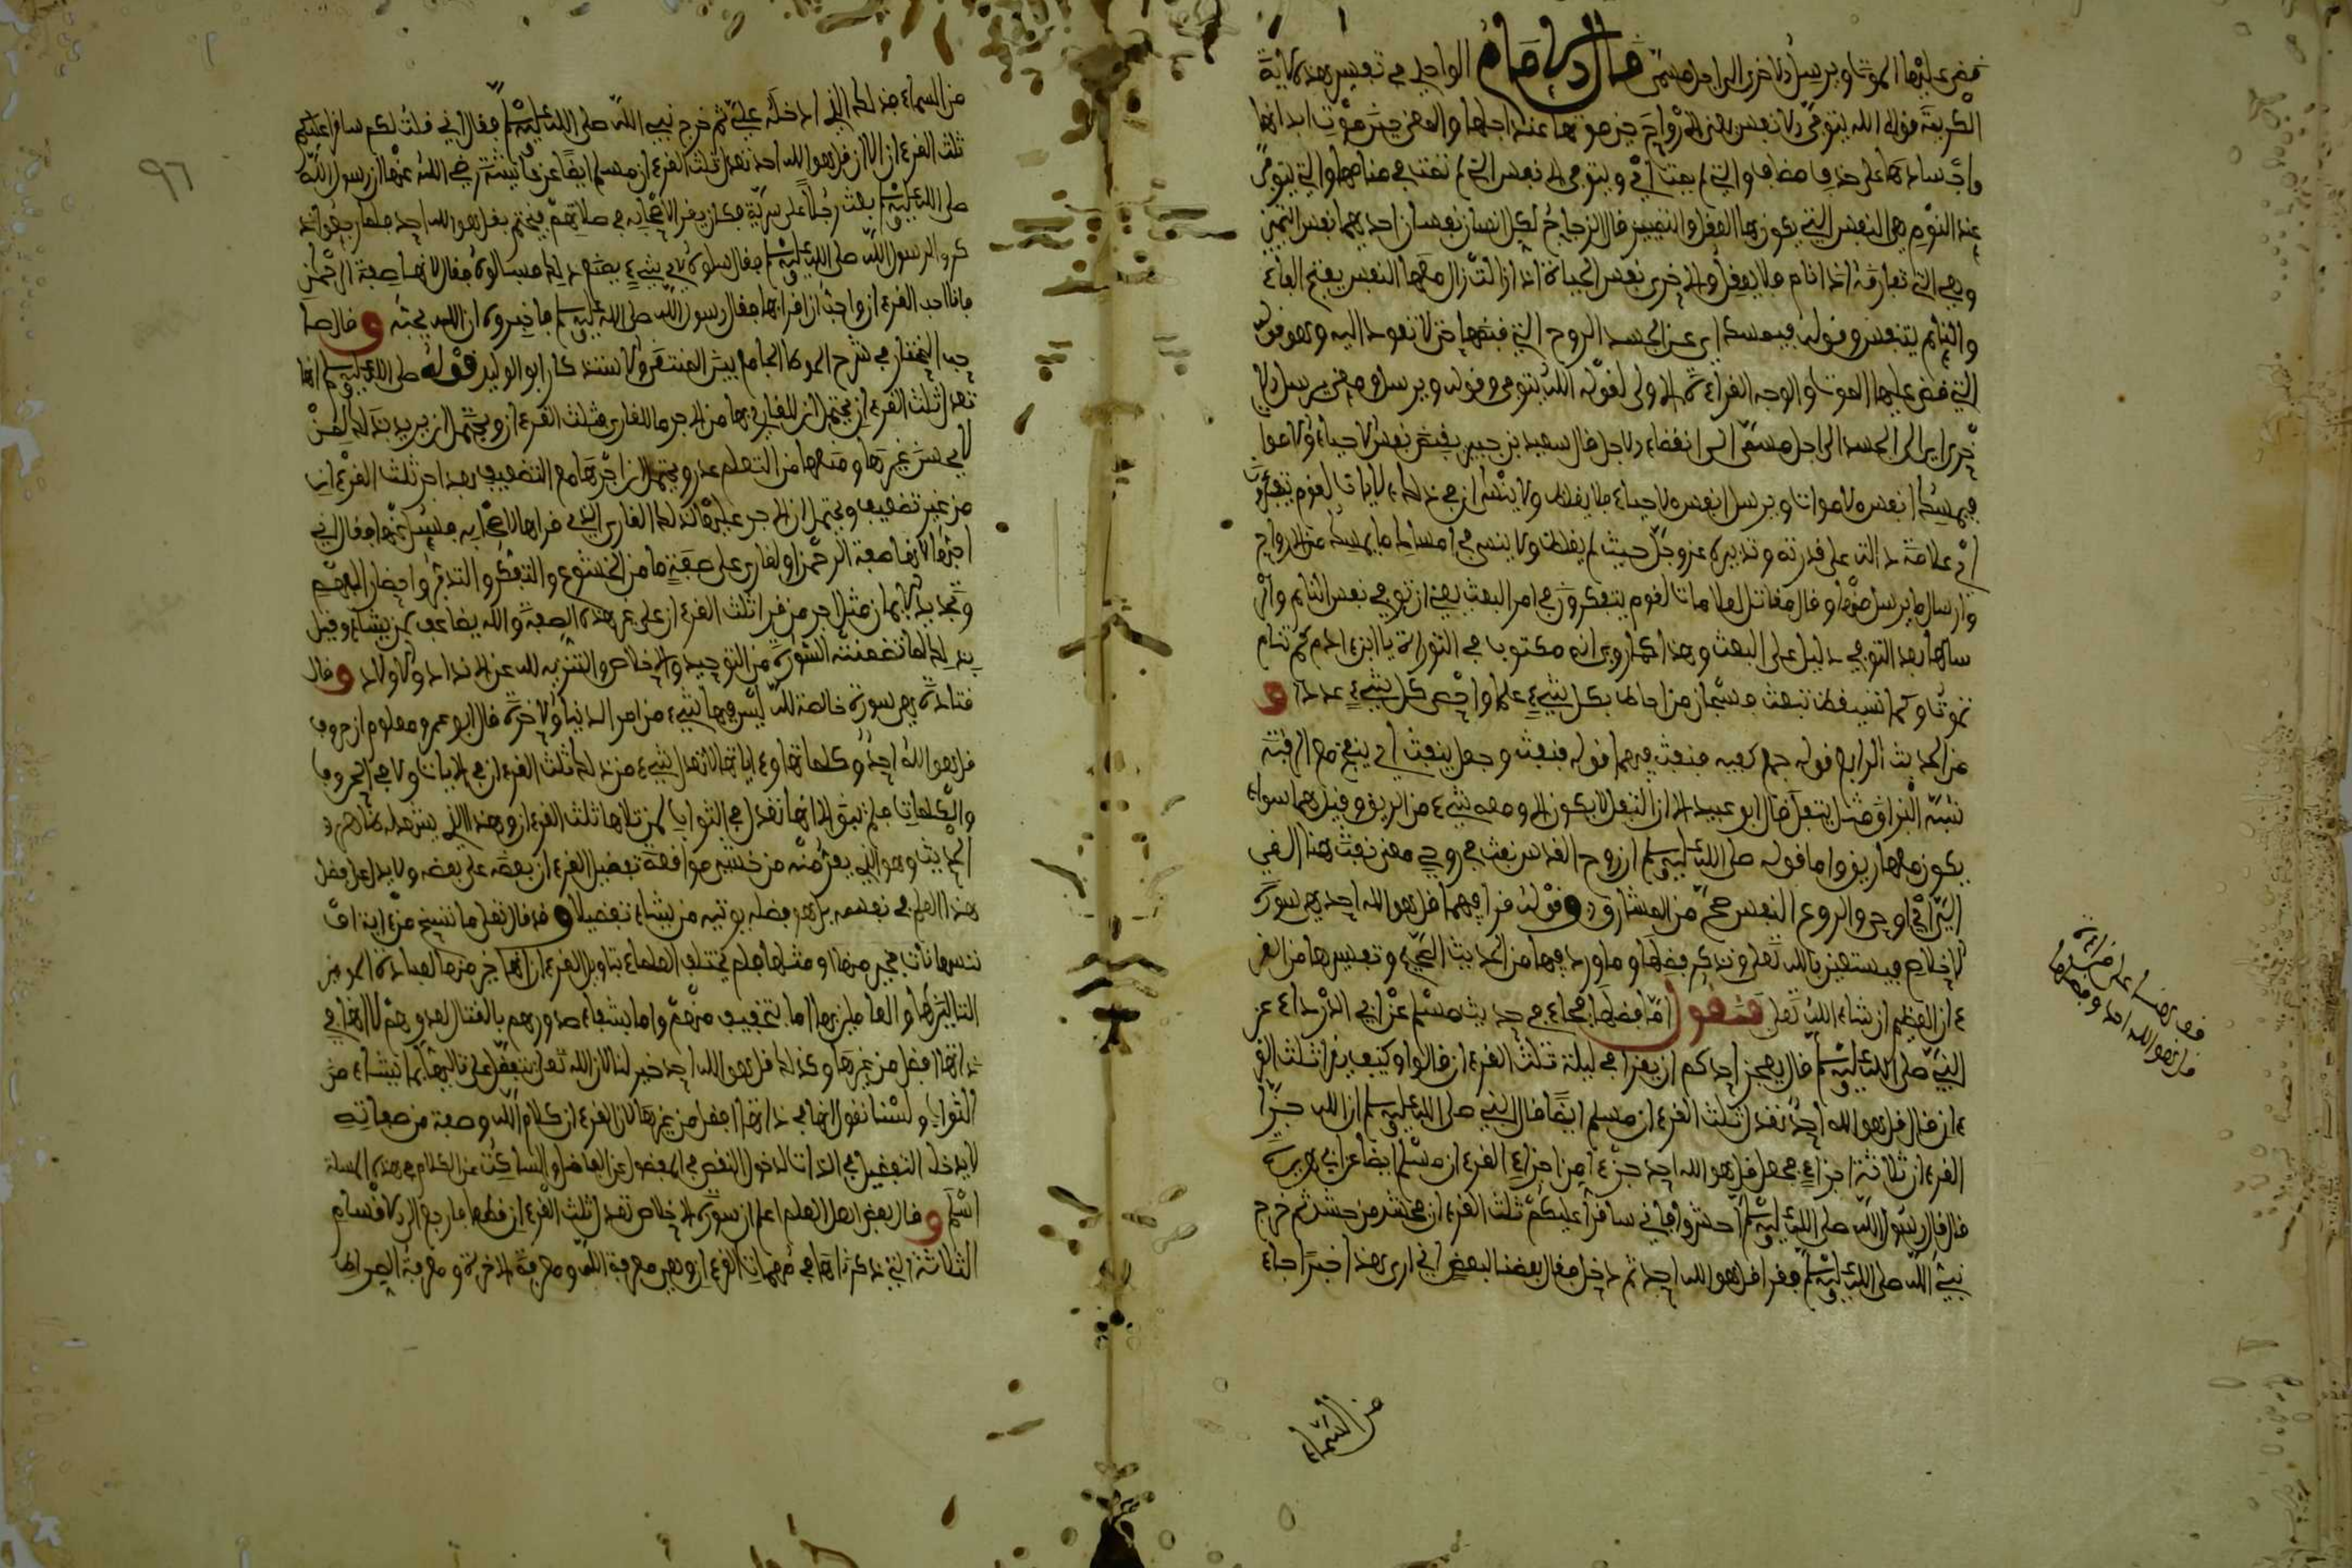 قضى عليها الموت ويرسل الاخرى الى اجل مسمى قال الامام الواحدي في تفسير هذه الاية
الكريمة قوله الله يتوفى الانفس يعني الارواح حين موتها عند اجلها والمعنى حين موت ابدانها
واجسادها على حذف مضاف والتي لم تمت اي ويتوفى الانفس التي لم تمت في منامها والتي يتوفى
عند النوم هي النفس التي يكون بها العقل والتمييز قال الزجاج لكل انسان نفسان احديهما نفس التمييز
وهي التي تفارقه اذا نام فلا يعقل والاخرى نفس الحياة اذا زالت زال معها النفس بفتح الفاء
والنايم يتنفس وقوله فيمسك اي عن الجسد الروح التي قبضها حتى لا تعود اليه وهو قوله
التي قضى عليها الموت والوجه القراءة الاولى لقوله الله يتوفى وقوله ويرسل ومعنى يرسل الا
خرى اي الى الجسد الى اجل مسمى الى انقضاء الاجل قال سعيد بن جبير يقبض نفس الاحياء والاموات
فيمسك انفس الاموات ويرسل انفس الاحياء فلا يغلط ولا ينسى ان في ذلك لايات لقوم يتفكرون
اي علامة دالة على قدرته وتدبيره عز وجل حيث لم يغلط ولا ينسى في امساك ما يمسك من الارواح
وارسال ما يرسل منها وقال مقاتل لعلامات لقوم يتفكرون في امر البعث يعني ان توفي نفس النايم وار
سالها بعد التوفي دليل على البعث وهذا كما روي انه مكتوب في التوراة يا ابن ادم كما تنام
تموت وكما تستيقظ تبعث فسبحان من احاط بكل شيء علما واحصى كل شيء عددا و
من الحديث الرابع قوله جمع كفيه فنفث فيهما قوله فنفث وجعل ينفث اي ينفخ مع الرقية
شبه البزاق مثل يتفل قال ابو عبيد الا ان التفل لا يكون الا ومعه شيء من الريق وقيل هما سواء
يكون معهما ريق واما قوله صلى الله عليه وسلم ان روح القدس نفث في روعي فمعنى نفث هنا القى
الي اي اوحى والروع النفس صح من المشارق وقوله قرا فيهما قل هو الله احد هي سورة
الاخلاص فنستعين بالله تعلى ونذكر فضلها وما ورد فيها من الحديث الصحيح وتفسيرها من القر
ءان العظيم ان شاء الله تعلى فنقول اما فضلها فجاء في حديث مسلم عن ابي الدرداء عن
النبي صلى الله عليه وسلم قال ايعجز احدكم ان يقرا في ليلة ثلث القرءان قالوا وكيف يقرا ثلث القر
ءان قال قل هو الله احد تعدل ثلث القرءان مسلم ايضا قال النبي صلى الله عليه وسلم ان الله جزا
القرءان ثلاثة اجزاء فجعل قل هو الله احد جزءا من اجزاء القرءان مسلم ايضا عن ابي هريرة
قال قال رسول الله صلى الله عليه وسلم احشدوا فاني ساقرا عليكم ثلث القرءان فحشد من حشد ثم خرج
نبيء الله صلى الله عليه وسلم فقرا قل هو الله احد ثم دخل فقال بعضنا لبعض اني ارى هذا خبرا جاء
من السماء
قل هو الله احد وفضلها
٩٦
من السماء فذلك الذي ادخله علي ثم خرج نبيء الله صلى الله عليه وسلم فقال اني قلت لكم ساقرا عليكم
ثلث القرءان الا ان قل هو الله احد تعدل ثلث القرءان مسلم ايضا عن عائشة رضي الله عنها ان رسول الله
صلى الله عليه وسلم بعث رجلا على سرية فكان يقرا لاصحابه في صلاتهم فيختم بقل هو الله احد فلما رجعوا ذ
كروا لرسول الله صلى الله عليه وسلم فقال سلوه لاي شيء يصنع ذلك فسالوه فقال لانها صفة الرحمن
فانا احب ان اقرا بها فقال رسول الله صلى الله عليه وسلم فاخبروه ان الله يحبه وقال صا
حب المختار في شرح الموطا الجامع بين المنتقى والاستذكار ابو الوليد قوله صلى الله عليه وسلم انها
تعدل ثلث القرءان يحتمل ان للقارئ بها من الاجر ما للقارئ ثلث القرءان ويحتمل ان يريد بذلك لمن
لا يحسن غيرها ومنعه من التعلم عذر ويحتمل ان اجرها مع التضعيف يعدل اجر ثلث القرءان
من غير تضعيف ويحتمل ان الاجر على ذلك القارئ الذي قراها لاصحابه فسيل عنها فقال اني
احبها لانها صفة الرحمن او لقارئ على صفة ما من الخشوع والتفكر والتدبر واحضار الفهم
وتجديد الايمان مثل اجر من قرا ثلث القرءان على غير هذه الصفة والله يضاعف لمن يشاء وقيل
بل ذلك لما تضمنته السورة من التوحيد والاخلاص والتنزيه لله عن الانداد والاولاد وقال
قتادة هي سورة خالصة لله ليس فيها شيء من امر الدنيا والاخرة قال ابو عمر ومعلوم ان حروف
قل هو الله احد وكلماتها وءاياتها لا تعدل شيء من ذلك ثلث القرءان في الايات ولا في الحروف
والكلمات فلم تبق الا انها تعدل في الثواب لمن تلاها ثلث القرءان وهذا الذي يشهد له ظاهر
الحديث وهو الذي يفر منه من خشي موافقة تفضيل القرءان بعضه على بعض ولا يدل على فضل
هذا العلم في نفسه بل هو فضله يوتيه من يشاء تفضيلا وقد قال تعلى ما ننسخ من اية او
ننسها نات بخير منها او مثلها فلم يختلف العلماء بتاويل القرءان انها خير منها لعباده المومنين
التالين لها والعاملين بها اما بتخفيف عنهم واما بشفاء صدورهم بالقتال لعدوهم لا انها في
ذاتها افضل من غيرها وكذلك قل هو الله احد خير لنا لان الله تعلى يتفضل على تاليها بما يشاء من
الثواب ولسنا نقول انها في ذاتها افضل من غيرها لان القرءان كلام الله وصفة من صفاته
لا يدخل التفضيل في الذات لدخول النقص في المفضول عن الفاضل والساكت عن الكلام في هذه المسلة
اسلم وقال بعض اهل العلم اعلم ان سورة الاخلاص تعدل ثلث القرءان قطعا فارجع الى الاقسام
الثلاثة التي ذكرناها في مهمات القرءان وهي معرفة الله ومعرفة الاخرة ومعرفة الصراط